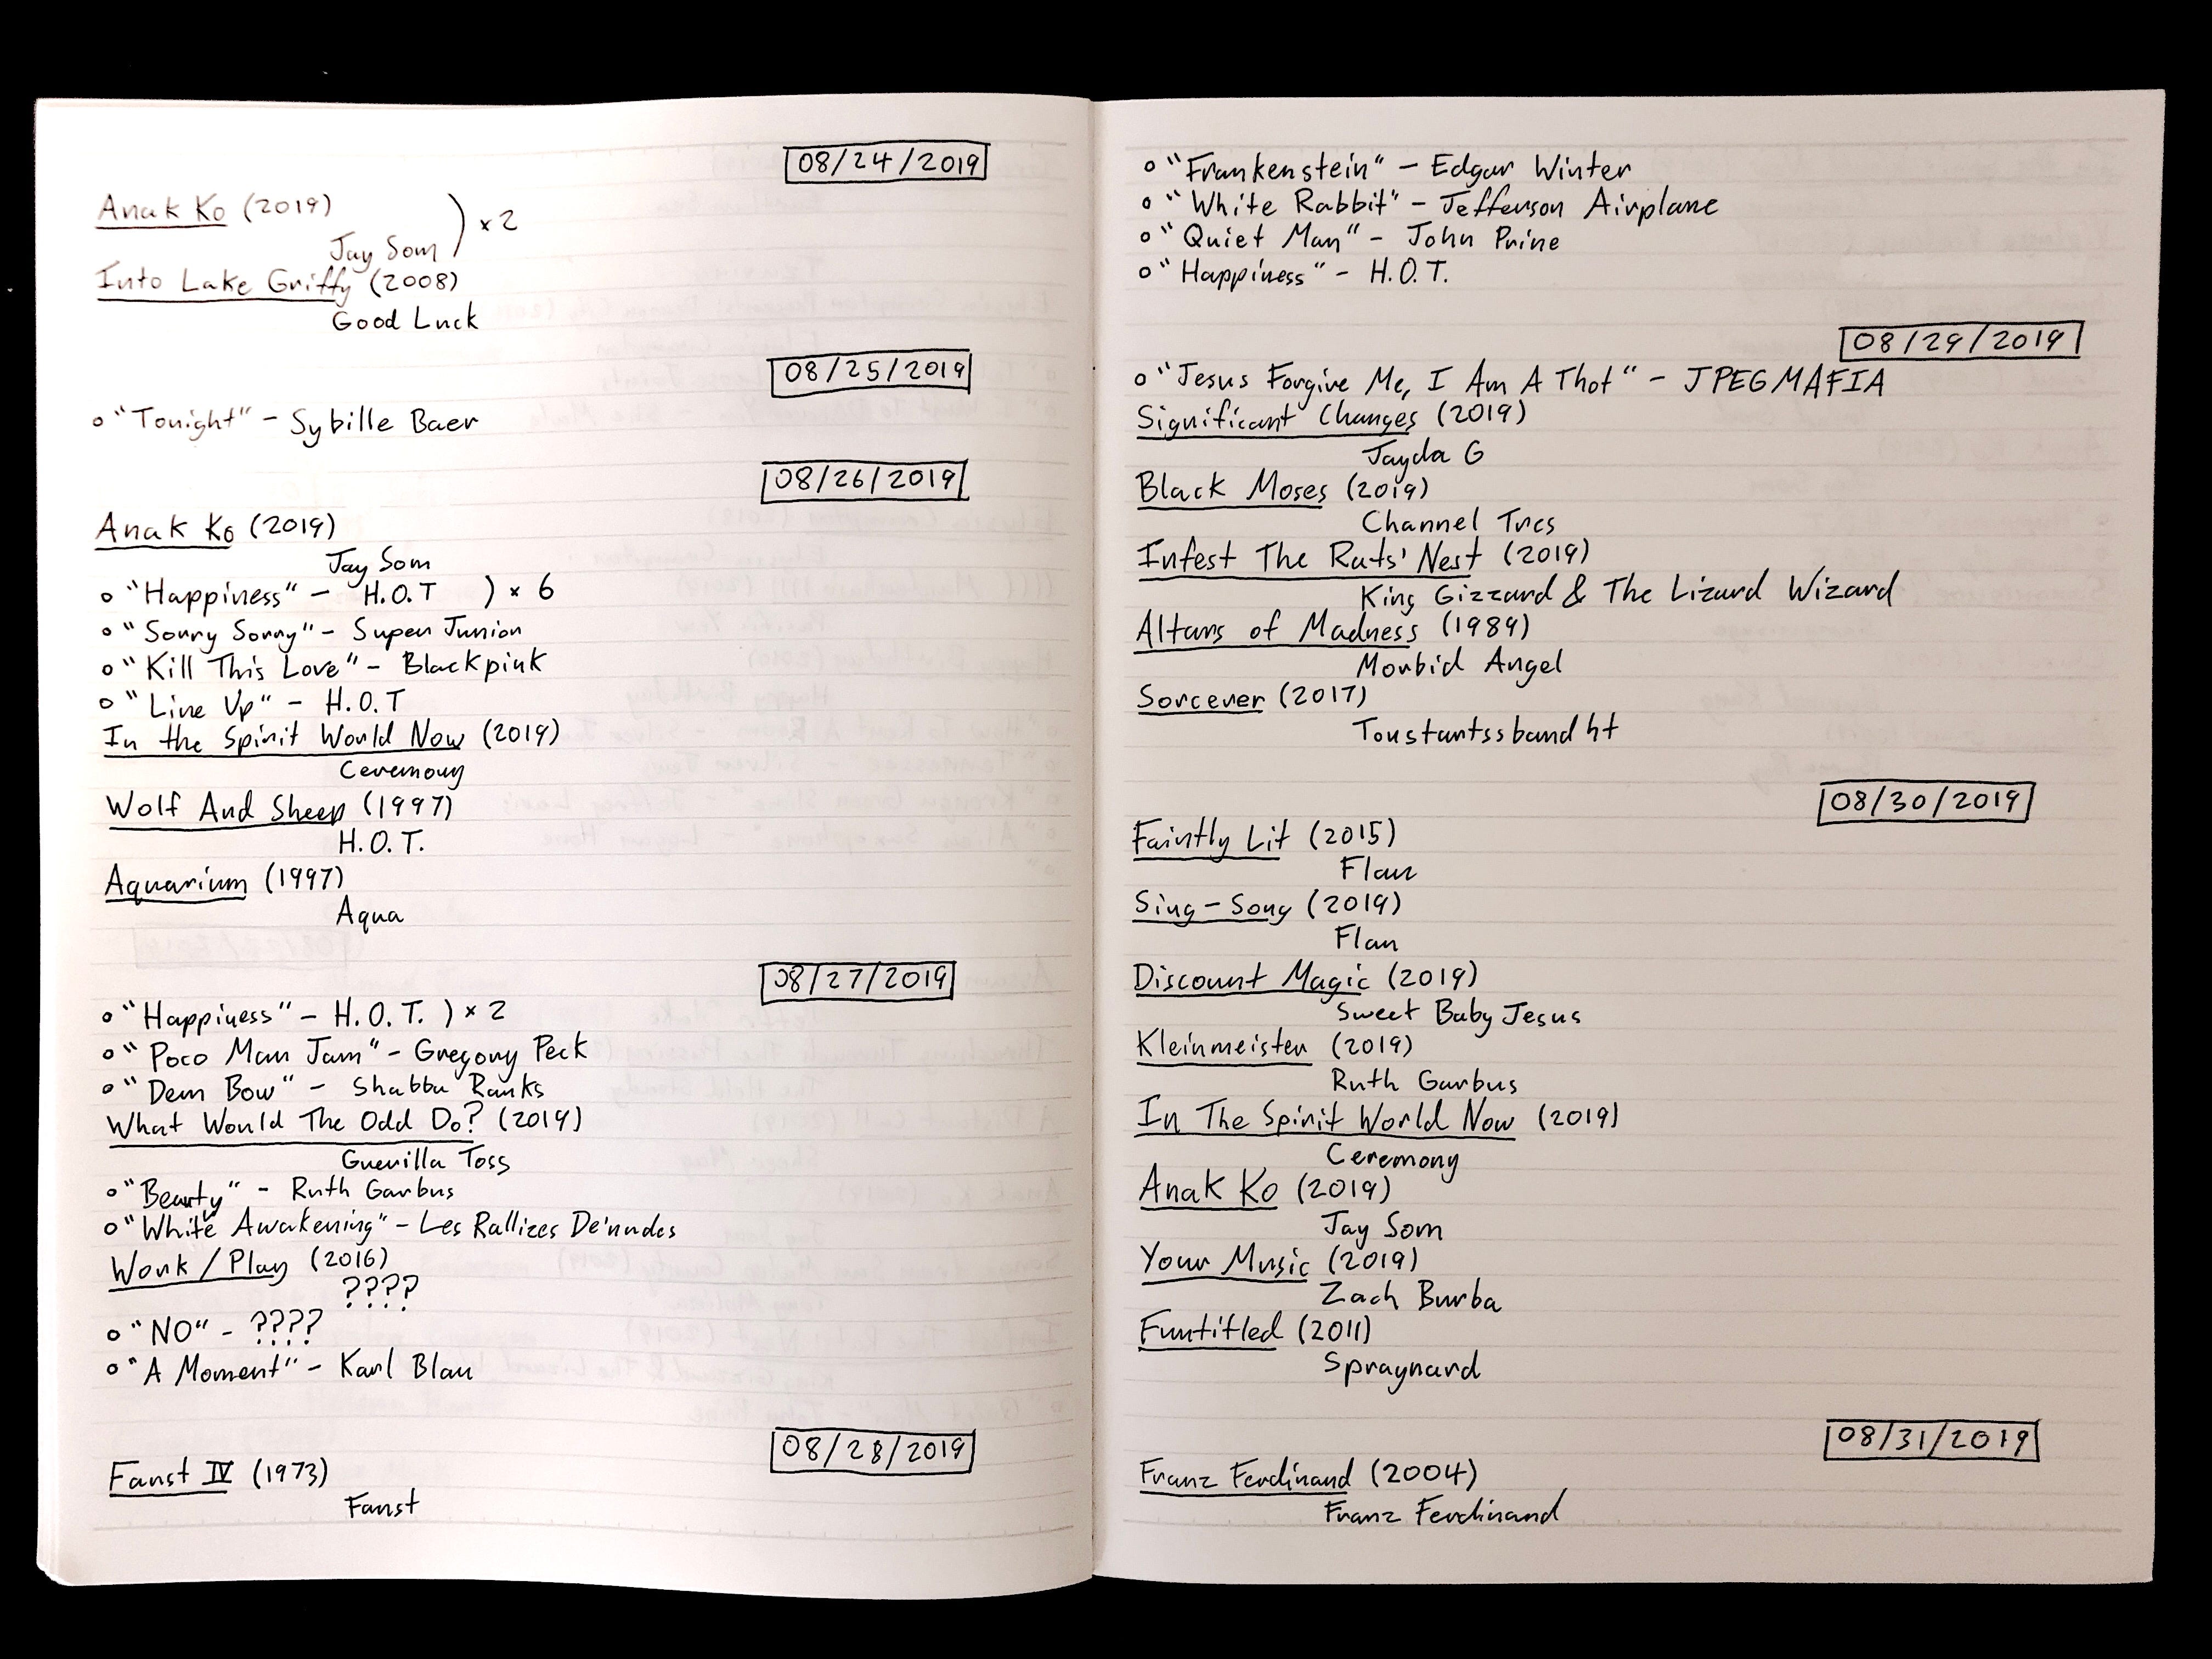 08/24/2019
Anak Ko (2019)
Jay Som ) x 2
Into Lake Griffy (2008)
Good Luck
08/25/2019
o "Tonight" - Sybille Baer
08/26/2019
Anak Ko (2019)
Jay Som
o "Happiness" - H.O.T ) x 6
o "Sorry Sorry" - Super Junior
o "Kill This Love" - Blackpink
o "Line Up" - H.O.T
In the Spirit World Now (2019)
Ceremony
Wolf And Sheep (1997)
H.O.T.
Aquarium (1997)
Aqua
08/27/2019
o "Happiness" - H.O.T. ) x 2
o "Poco Man Jam" - Gregory Peck
o "Dem Bow" - Shabba Ranks
What Would The Odd Do? (2019)
Guerilla Toss
o "Beauty" - Ruth Garbus
o "White Awakening" - Les Rallizes De'nudes
Work/Play (2016)
????
o "NO" - ????
o "A Moment" - Karl Blau
08/28/2019
Faust IV (1973)
Faust
o "Frankenstein" - Edgar Winter
o "White Rabbit" - Jefferson Airplane
o "Quiet Man" - John Prine
o "Happiness" - H.O.T.
08/29/2019
o "Jesus Forgive Me, I Am A Thot" - JPEGMAFIA
Significant Changes (2019)
Jayda G
Black Moses (2019)
Channel Tres
Infest The Rats' Nest (2019)
King Gizzard & The Lizard Wizard
Altars of Madness (1989)
Morbid Angel
Sorcerer (2017)
Tonstartssbandht
08/30/2019
Faintly Lit (2015)
Flan
Sing-Song (2019)
Flan
Discount Magic (2019)
Sweet Baby Jesus
Kleinmeister (2019)
Ruth Garbus
In The Spirit World Now (2019)
Ceremony
Anak Ko (2019)
Jay Som
Your Music (2019)
Zach Burba
Funtitled (2011)
Spraynard
08/31/2019
Franz Ferdinand (2004)
Franz Ferdinand